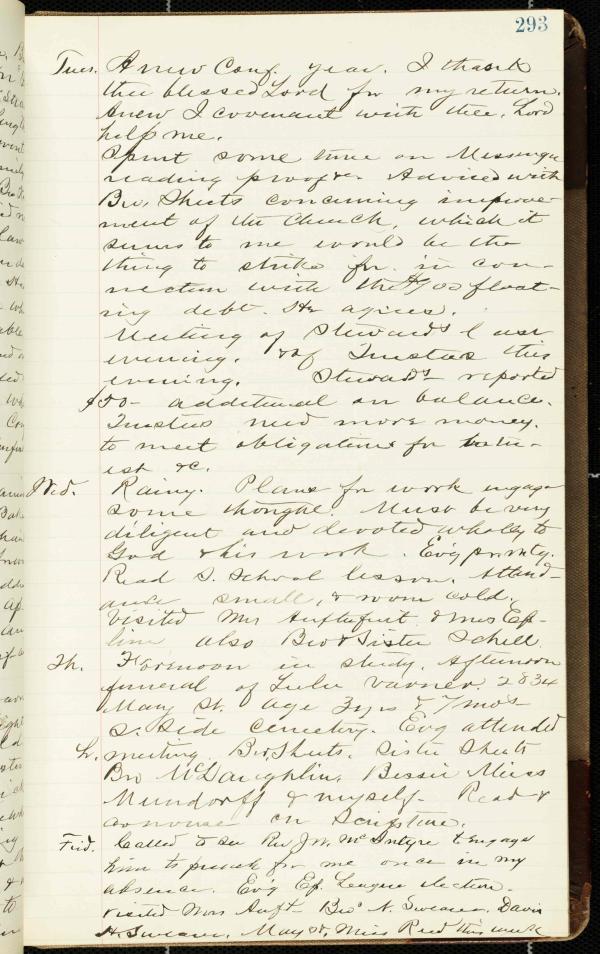 293
Tues. A new Conf. year. I thank
thee blessed Lord for my return.
Anew I covenant with thee, Lord
help me.
Spent some time on Messenger
reading proof &c. Advised with
Bro. Sheets concerning improve-
ment of the Church, which it
seems to me would be the
thing to strike for in con-
nection with the float-
ing debt. He agrees.
Meeting of Stewards last
evening. & of Trustees this
evening. Stewards reported
additional on balance.
Trustees need more money.
to meet obligations for inter-
est &c.
Wed. Rainy. Plans for work engage
some thought. Must be very
diligent and devoted wholly to
God & his work. Ev'g pr. mtg.
Read S. School lesson. Attend-
ance small, & room cold.
Visited Mrs & Mrs
also Bro & Sister Schell
Th. Forenoon in study. Afternoon
funeral of Lulu Varner. 2834
Mary St. age 3 yrs & 7 mos
S. Side Cemetery. Ev'g attended
meeting. Bro. Sheets. Sister Sheets
Bro McLaughlin, Bessie
Mundorff & myself. Read &
converse on Scripture.
Frid. Called to see Rev J.W. McIntyre to engage
him to preach for me once in my
absence. Ev'g Ep. League election.
Visited Mrs Bro. N. Swearer, David
H. Swearer, Mary St. Miss Reed this week